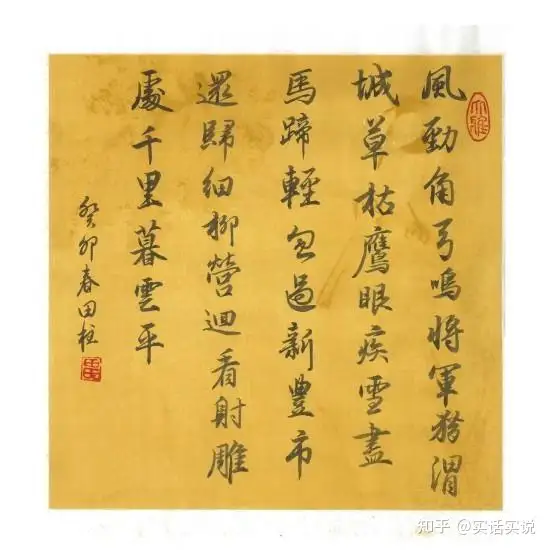 風勁角弓鳴將軍獵渭
城草枯鷹眼疾雪盡
馬蹄輕忽過新豐市
還歸細柳營迴看射雕
處千里暮雲平
癸卯春田柱
知乎 @实话实说